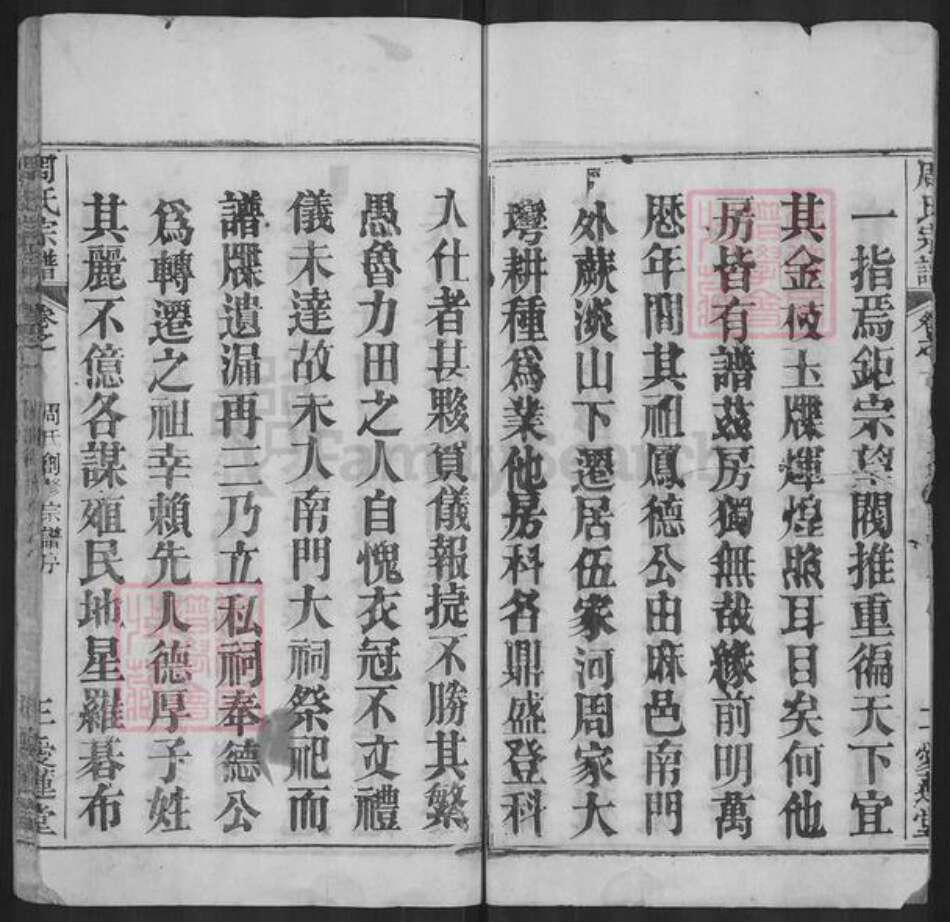 一指焉鉅宗望閥推重徧天下宜
其金枝玉牒煇煌照耳目矣何他
房皆有譜茲房獨無哉緣前明萬
厯年間其祖鳳德公由麻邑南門
外蕨淡山下遷居伍家河周家大
灣耕種爲業他房科名鼎盛登科
入仕者甚夥賀儀報捷不勝其繁
愚魯力田之人自愧衣冠不文禮
儀未達故未入南門大祠祭祀而
譜牒遺漏再三乃立私祠奉德公
爲轉遷之祖幸賴先人德厚子姓
其麗不億各謀殖民地星羅碁布
周氏宗譜 卷之 周氏創修宗譜序 三 愛蓮堂
FamilySearch